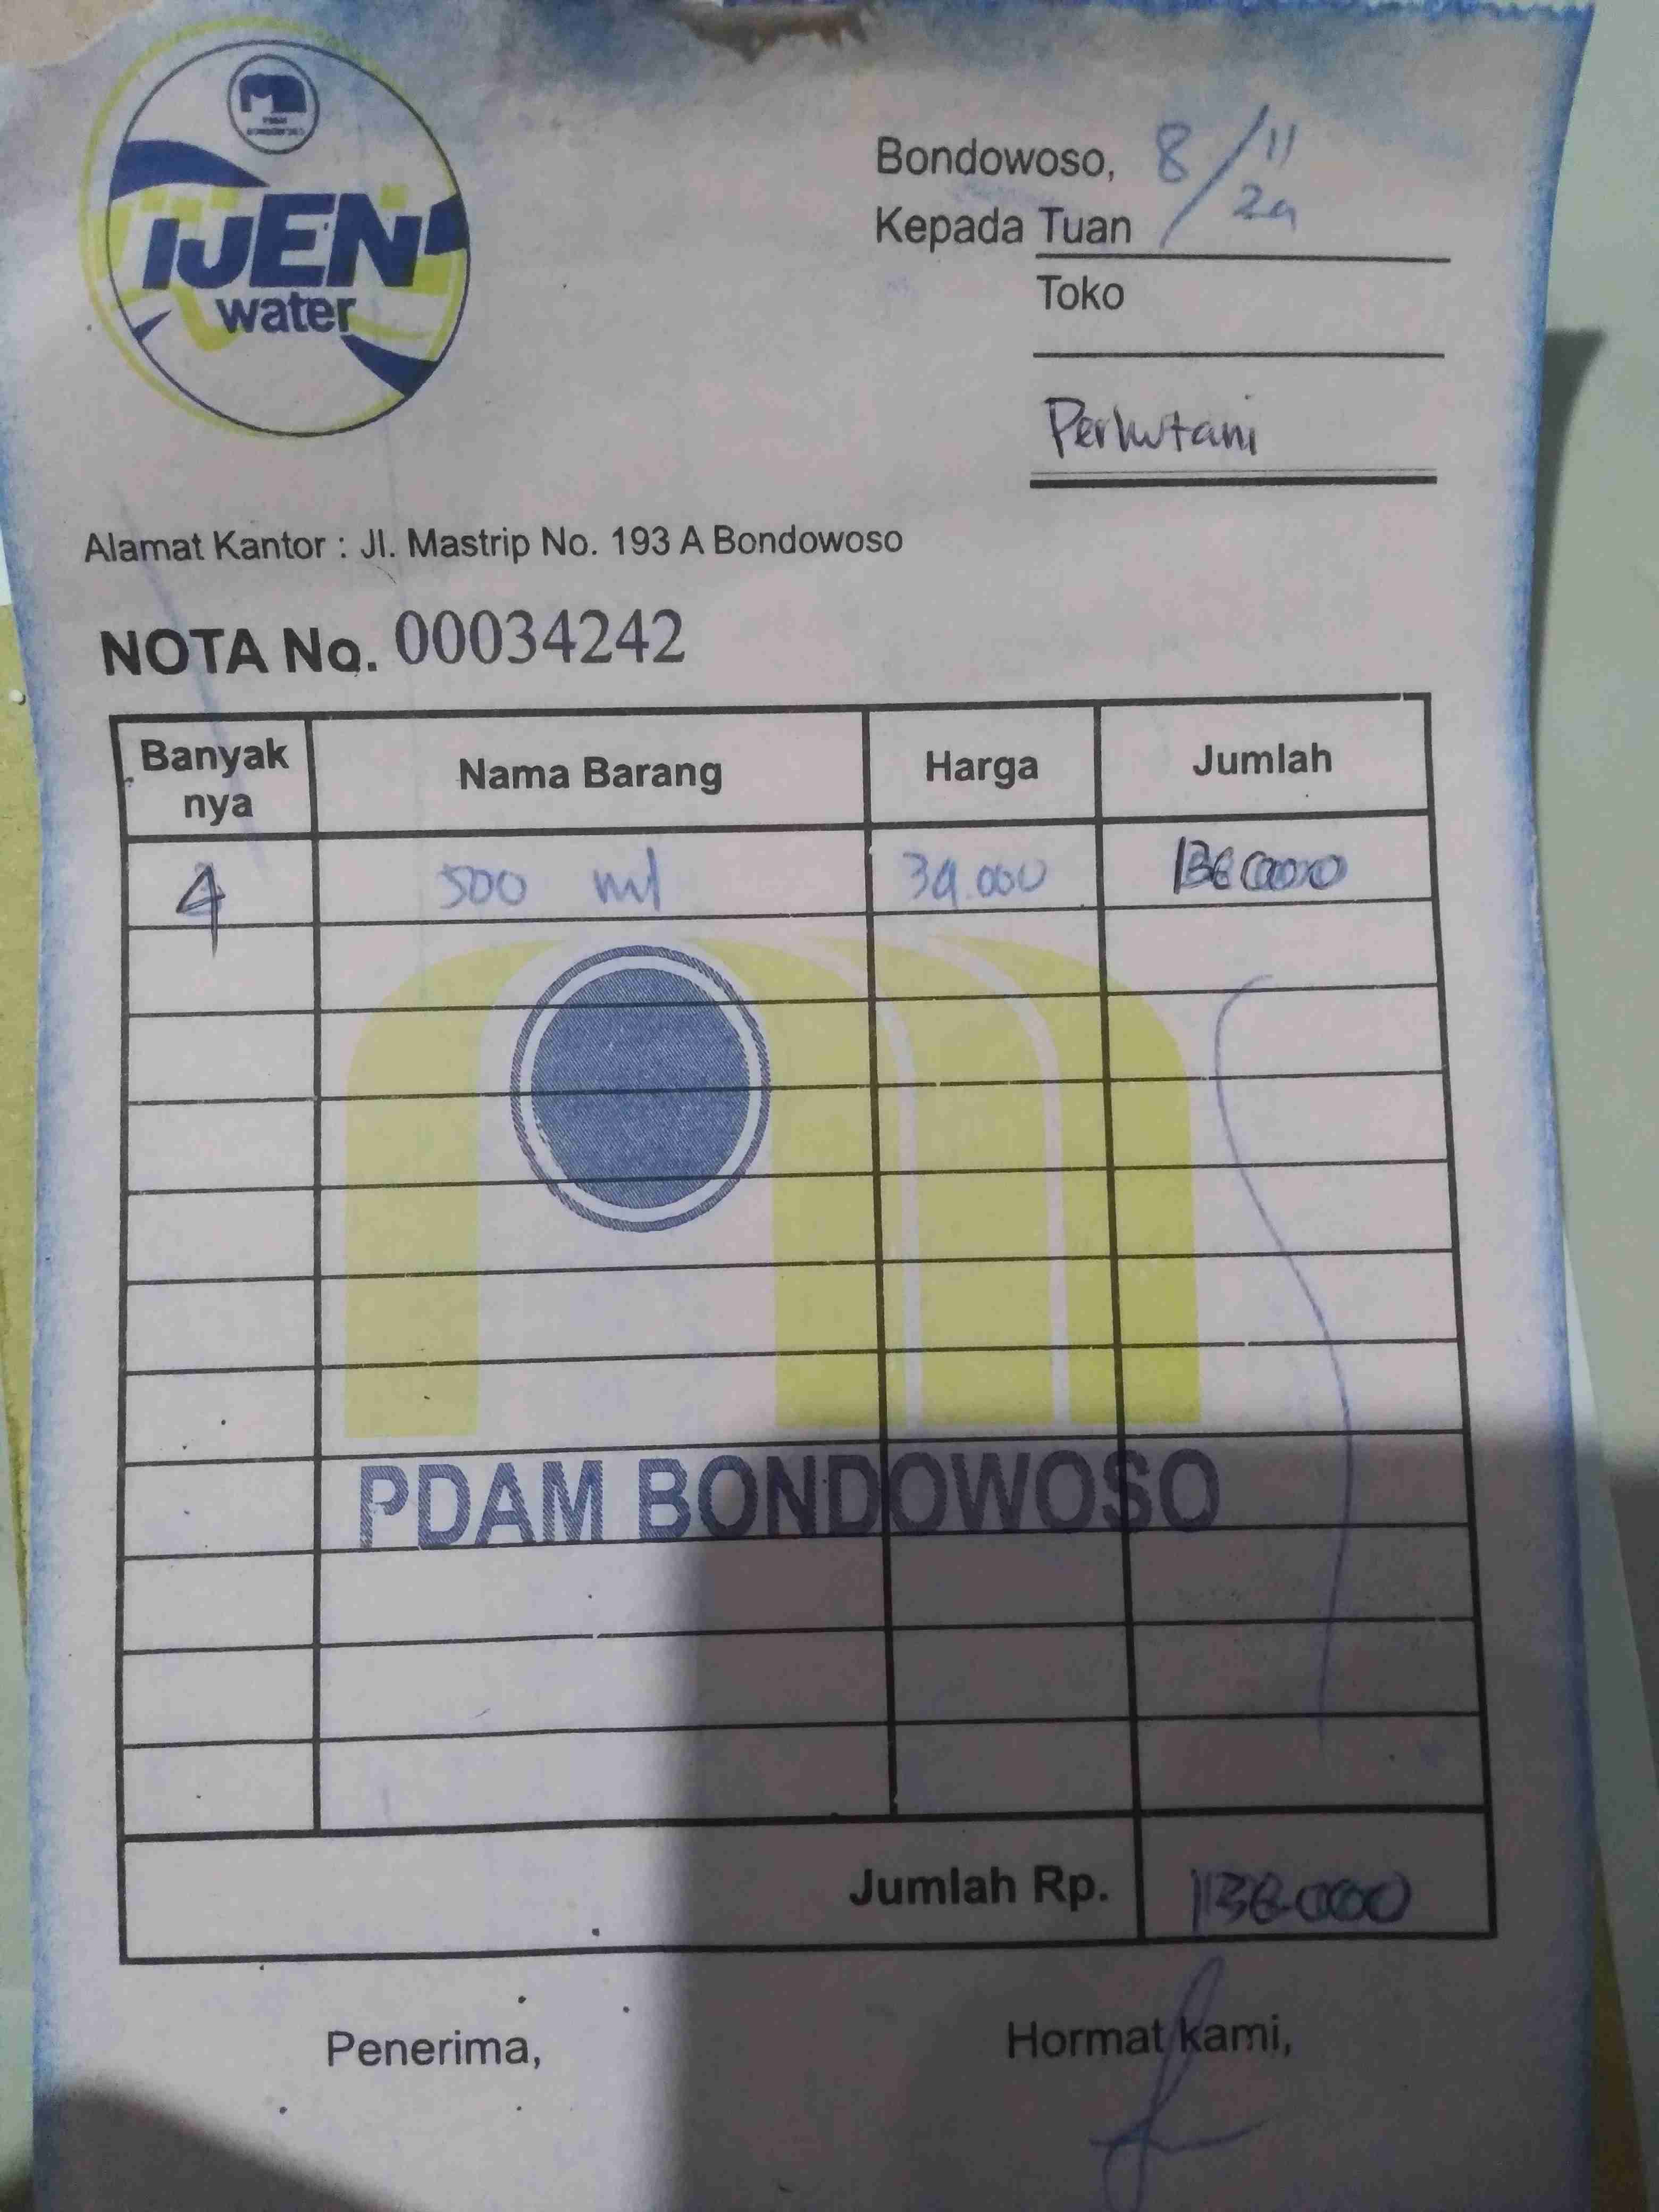 IJEN
water
Bondowoso, 8/11 24
Kepada Tuan
Toko
Perhutani
Alamat Kantor : Jl. Mastrip No. 193 A Bondowoso
NOTA No. 00034242
Banyak nya Nama Barang Harga Jumlah
4 500 ml 34.000 136.000
PDAM BONDOWOSO
Jumlah Rp. 136.000
Penerima, Hormat kami,